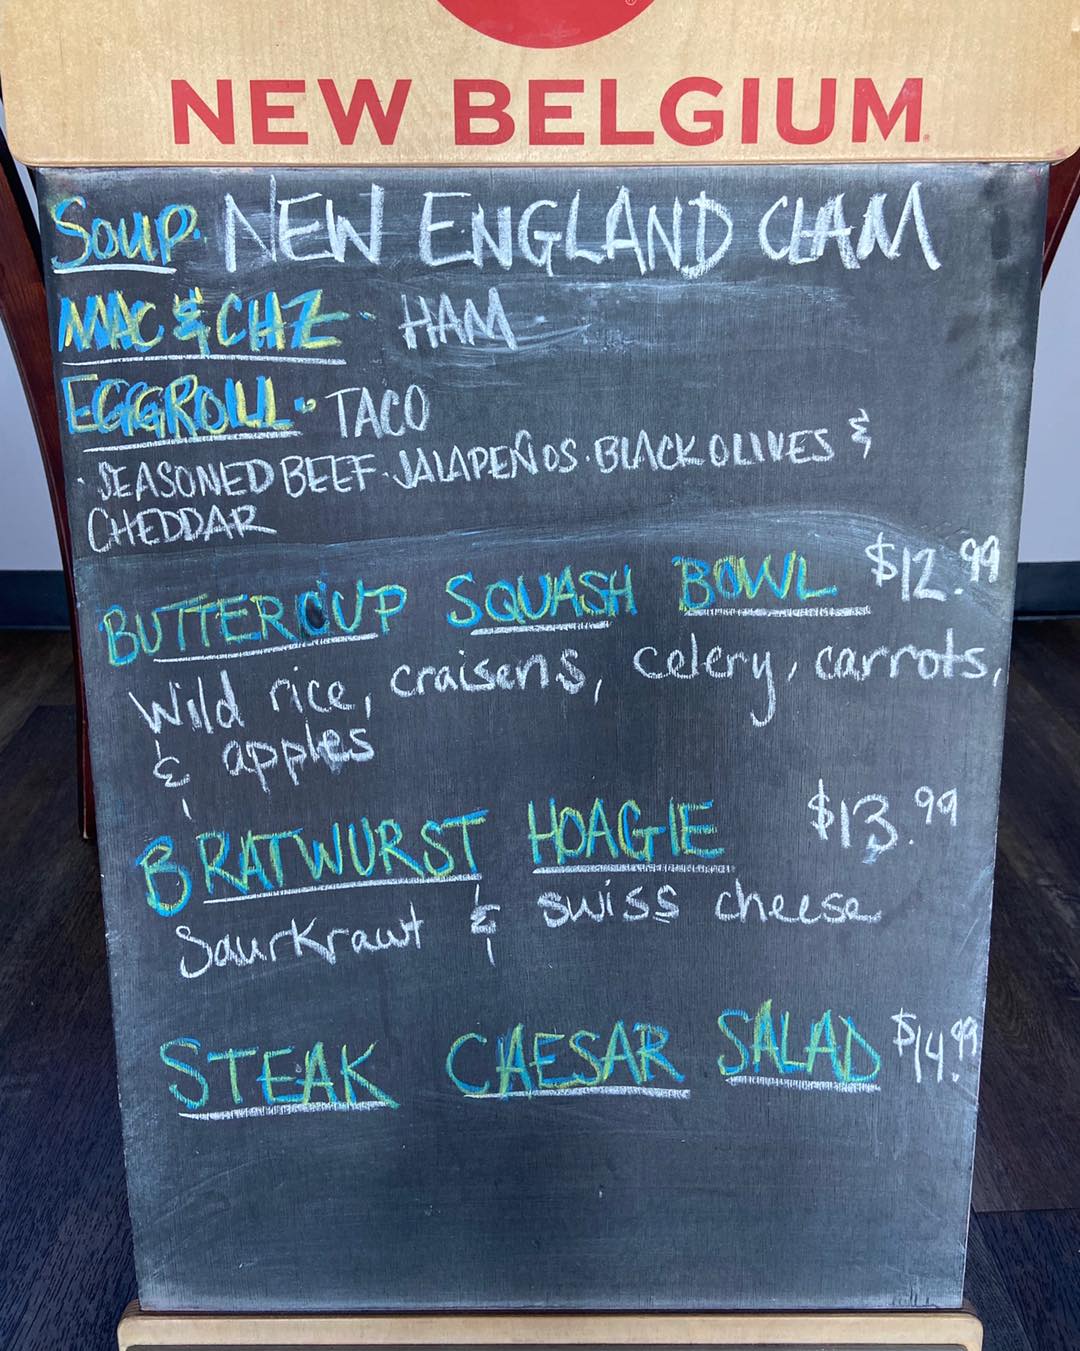 NEW BELGIUM
SOUP. NEW ENGLAND CLAM
MAC & CHZ · HAM
EGGROLL · TACO
· SEASONED BEEF · JALAPEÑOS · BLACK OLIVES &
CHEDDAR
BUTTERCUP SQUASH BOWL $12.99
Wild rice, craisens, celery, carrots,
& apples
BRATWURST HOAGIE $13.99
Saurkrawt & swiss cheese
STEAK CAESAR SALAD $14.99